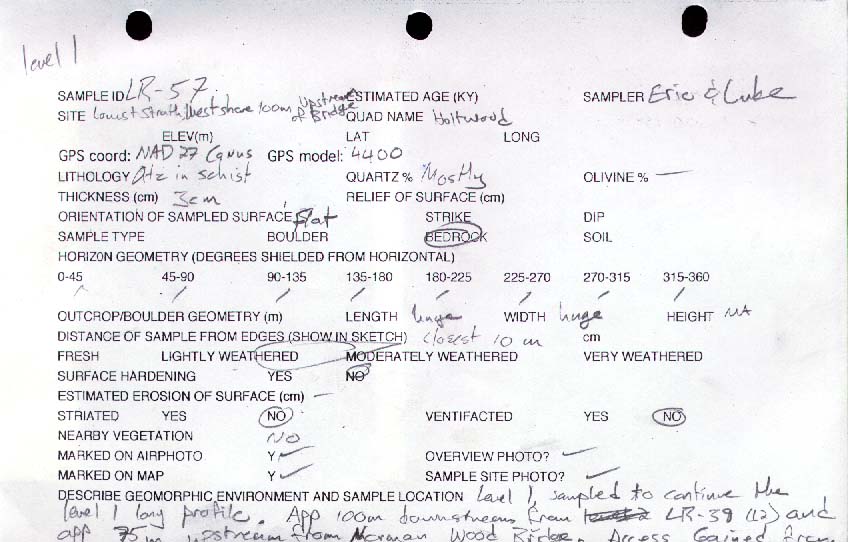 level 1
SAMPLE ID LR-57 ESTIMATED AGE (KY) SAMPLER Eric & Luke
SITE Lowest Strath, West shore 100m upstream of Bridge QUAD NAME Holtwood
ELEV(m) LAT LONG
GPS coord: NAD 27 Conus GPS model: 4400
LITHOLOGY Qtz in schist QUARTZ % Mostly OLIVINE % —
THICKNESS (cm) 3cm RELIEF OF SURFACE (cm)
ORIENTATION OF SAMPLED SURFACE Flat STRIKE DIP
SAMPLE TYPE BOULDER BEDROCK SOIL
HORIZON GEOMETRY (DEGREES SHIELDED FROM HORIZONTAL)
0-45 45-90 90-135 135-180 180-225 225-270 270-315 315-360
OUTCROP/BOULDER GEOMETRY (m) LENGTH huge WIDTH huge HEIGHT NA
DISTANCE OF SAMPLE FROM EDGES (SHOW IN SKETCH) closest 10 m cm
FRESH LIGHTLY WEATHERED MODERATELY WEATHERED VERY WEATHERED
SURFACE HARDENING YES NO
ESTIMATED EROSION OF SURFACE (cm) —
STRIATED YES NO VENTIFACTED YES NO
NEARBY VEGETATION NO
MARKED ON AIRPHOTO Y ✓ OVERVIEW PHOTO? ✓
MARKED ON MAP Y ✓ SAMPLE SITE PHOTO? ✓
DESCRIBE GEOMORPHIC ENVIRONMENT AND SAMPLE LOCATION Level 1, sampled to continue the
level 1 long profile. App 100m downstream from LR-39 (L2) and
app 75m upstream from Norman Wood Bridge. Access Gained from